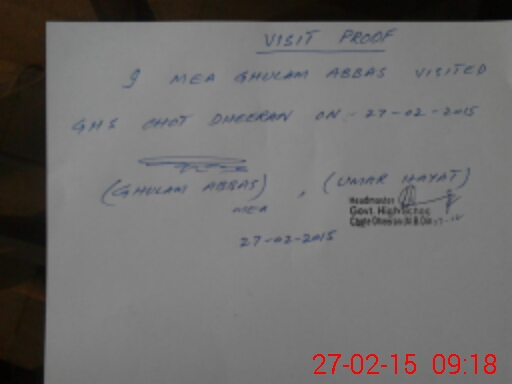 VISIT PROOF
I MEA GHULAM ABBAS VISITED
GHS CHOT DHEERAN ON - 27-02-2015
(GHULAM ABBAS) , (UMAR HAYAT)
MEA
Headmaster
Govt. High
27-02-2015
27-02-15 09:18